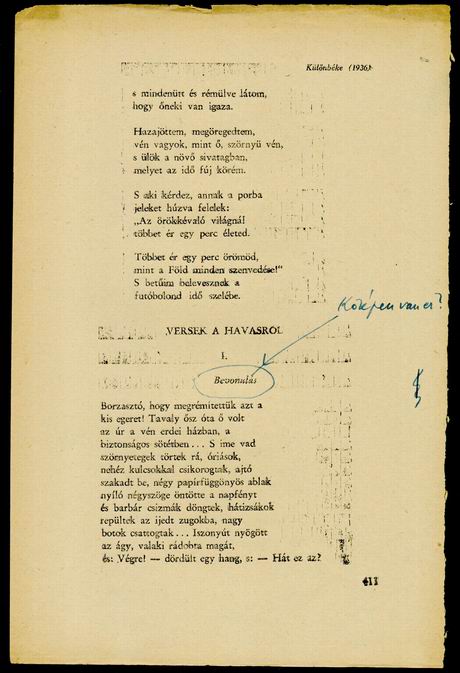 Különbéke (1936)
s mindenütt és rémülve látom,
hogy őneki van igaza.
Hazajöttem, megöregedtem,
vén vagyok, mint ő, szörnyü vén,
s ülök a növő sivatagban,
melyet az idő fúj körém.
S aki kérdez, annak a porba
jeleket húzva felelek:
„Az örökkévaló világnál
többet ér egy perc életed.
Többet ér egy perc örömöd,
mint a Föld minden szenvedése!"
S betűim belevesznek a
futóbolond idő szelébe.
Középen van ez?
VERSEK A HAVASRÓL
I.
Bevonulás
Borzasztó, hogy megrémítettük azt a
kis egeret! Tavaly ősz óta ő volt
az úr a vén erdei házban, a
biztonságos sötétben... S ime vad
szörnyetegek törtek rá, óriások,
nehéz kulcsokkal csikorogtak, ajtó
szakadt be, négy papírfüggönyös ablak
nyíló négyszöge öntötte a napfényt
és barbár csizmák döngtek, hátizsákok
repültek az ijedt zugokba, nagy
botok csattogtak... Iszonyút nyögött
az ágy, valaki rádobta magát,
és: Végre! — dördült egy hang, s: — Hát ez az?
411